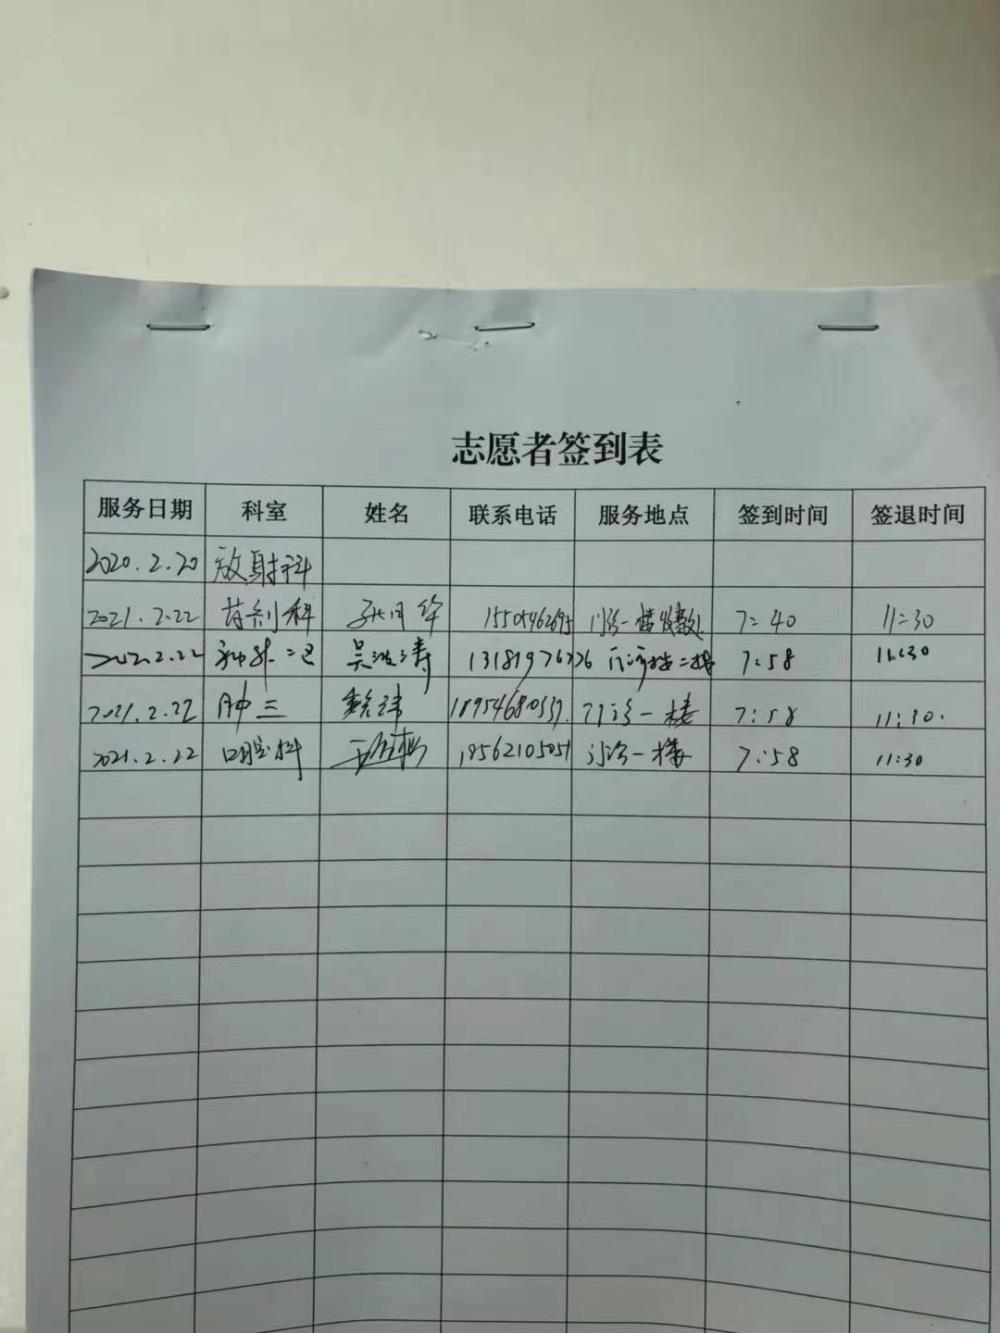 志愿者签到表
服务日期 科室 姓名 联系电话 服务地点 签到时间 签退时间
2020.2.20 放射科
2021.2.22 药剂科 门诊一楼收费处 7:40 11:30
2021.2.22 吴 涛 13181976726 门诊楼二楼 7:58 11:30
2021.2.22 肿三 18954680537 门诊一楼 7:58 11:30.
2021.2.22 口腔科 门诊一楼 7:58 11:30